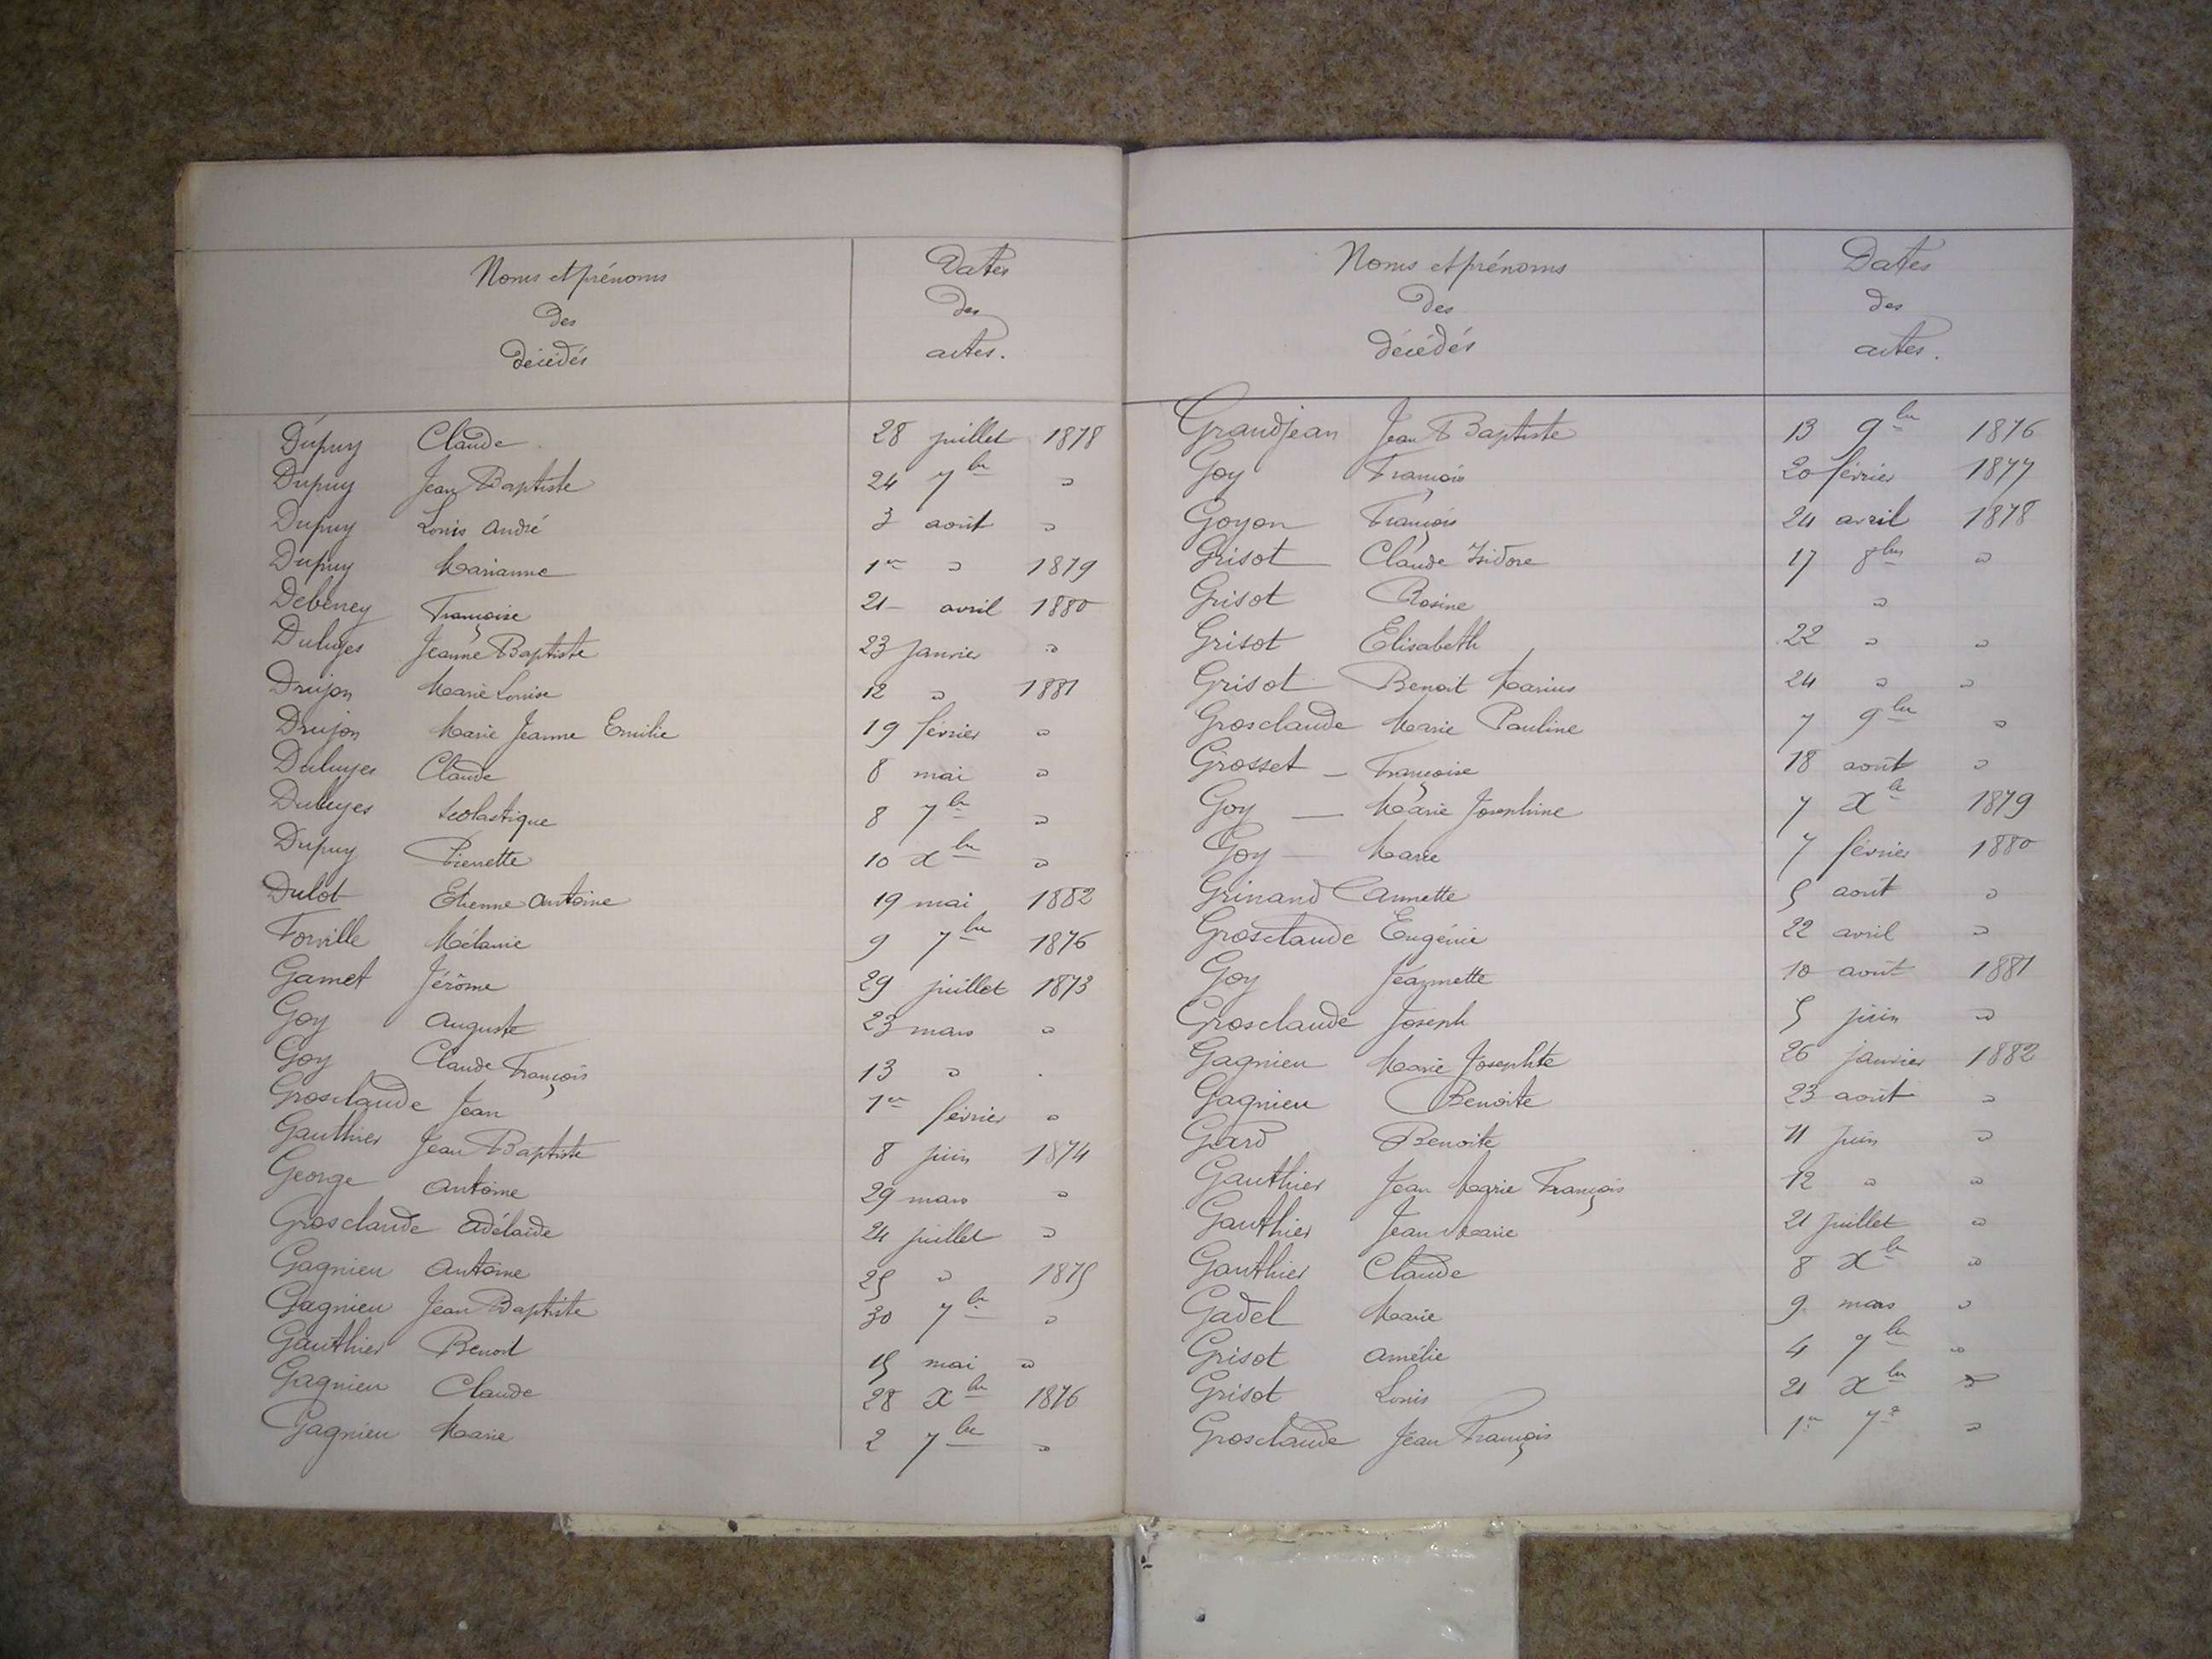 Noms et prénoms
des
décédés
Dates
des
actes.
Dupuy Claude 28 juillet 1878
Dupuy Jean Baptiste 24 7bre "
Dupuy Louis André 3 août "
Dupuy Marianne 1er " 1879
Debeney Françoise 21 avril 1880
Duluyes Jeanne Baptiste 23 janvier "
Drujon Marie Louise 12 " 1881
Drujon Marie Jeanne Emilie 19 février "
Duluyes Claude 8 mai "
Duluyes Scolastique 8 7bre "
Dupuy Pierrette 10 xbre "
Dulot Etienne Antoine 19 mai 1882
Forville Mélanie 9 7bre 1876
Gamet Jérôme 29 juillet 1873
Goy Auguste 23 mars "
Goy Claude François 13 " .
Grosclaude Jean 1er février "
Gauthier Jean Baptiste 8 juin 1874
George Antoine 29 mars "
Grosclaude Adélaïde 24 juillet "
Gagnieu Antoine 25 " 1875
Gagnieu Jean Baptiste 30 7bre "
Gauthier Benoit 15 mai "
Gagnieu Claude 28 xbre 1876
Gagnieu Marie 2 7bre "
Noms et prénoms
des
décédés
Dates
des
actes.
Grandjean Jean Baptiste 13 9bre 1876
Goy François 20 février 1877
Goyon François 24 avril 1878
Grisot Claude Isidore 17 8bre "
Grisot Rosine "
Grisot Elisabeth 22 " "
Grisot Benoit Marius 24 " "
Grosclaude Marie Pauline 7 9bre "
Grosset - Françoise 18 août "
Goy — Marie Josephine 7 xbre 1879
Goy — Marie 7 février 1880
Grinand Annette 5 août "
Grosclaude Eugénie 22 avril "
Goy Jeannette 10 août 1881
Grosclaude Joseph 5 juin "
Gagnieu Marie Josephte 26 janvier 1882
Gagnieu Benoite 23 août "
Gard Benoite 11 juin "
Gauthier Jean Marie François 12 " "
Gauthier Jean Marie 21 juillet "
Gauthier Claude 8 xbre "
Gadel Marie 9 mars "
Grisot Amélie 4 9bre "
Grisot Louis 21 xbre "
Grosclaude Jean François 1er 7e "